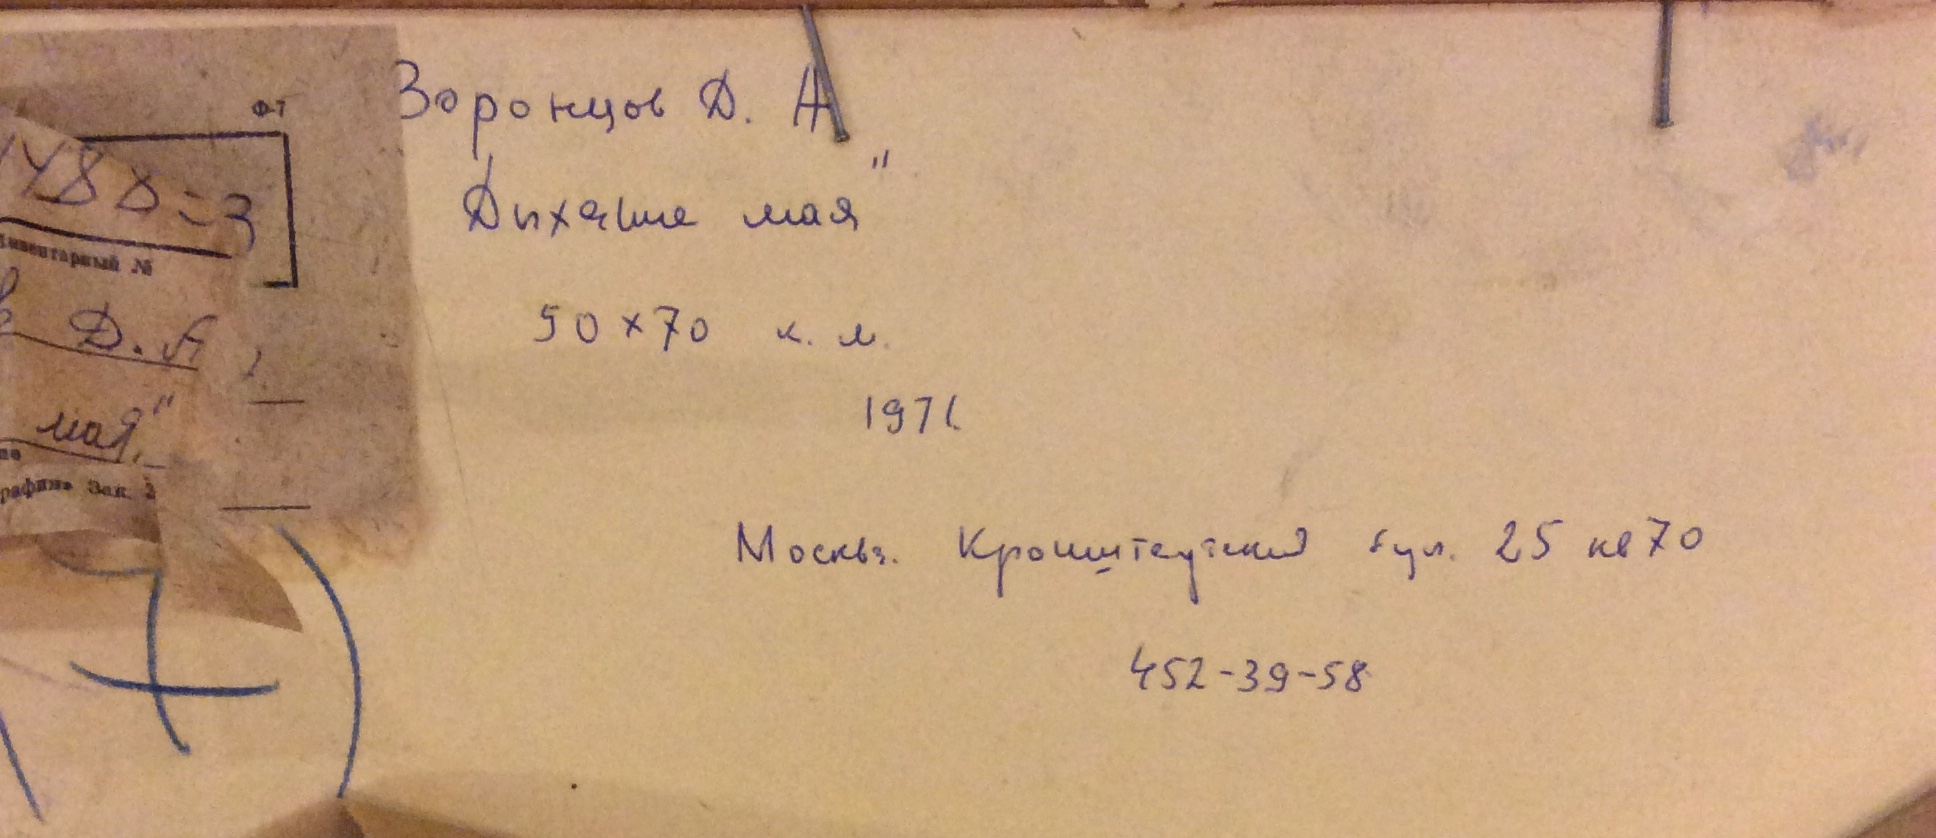 Ф-7
488=3
Инвентарный №
в Д. А,
мая"
Зак. 2
Воронцов Д. А
"Дыхание мая"
50х70 к. м.
1971
Москва. Кронштадтский бул. 25 кв 70
452-39-58